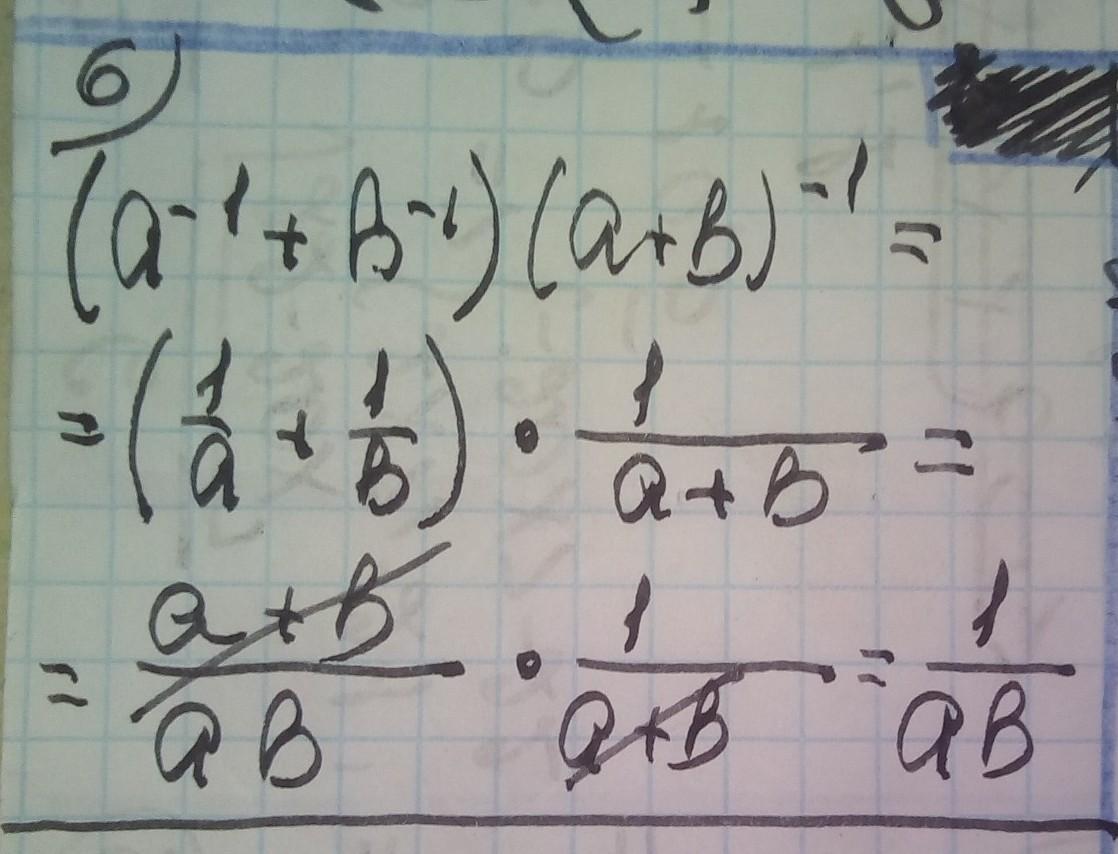 б)
(a⁻¹ + b⁻¹)(a+b)⁻¹ =
= (1/a + 1/b) • 1/(a+b) =
= (a+b)/(ab) • 1/(a+b) = 1/(ab)